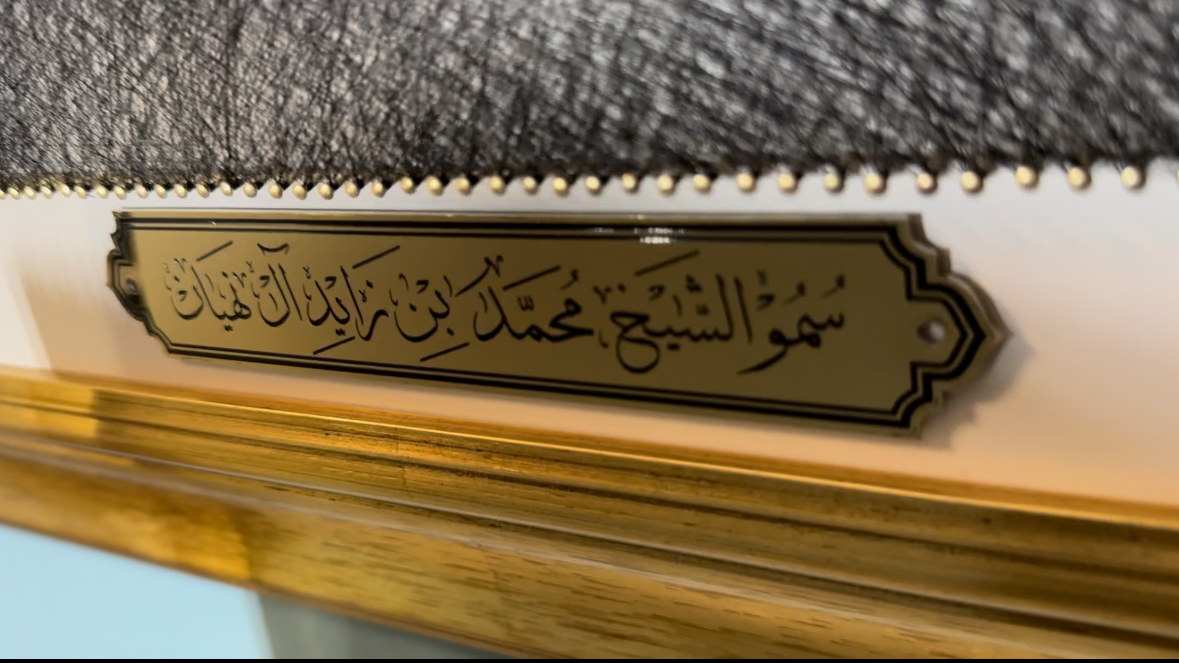 سُمُوْ الشَّيخ مُحمَّد بِن زَايِدِ آل نهيان